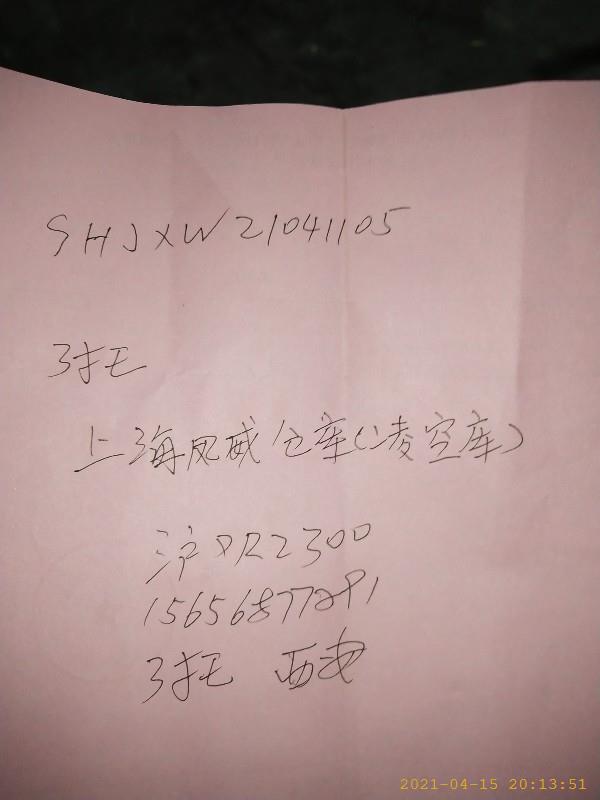 SHJXW21041105
3托
上海风威仓库(凌空库)
沪DR2300
15656877291
3托 西安
2021-04-15 20:13:51